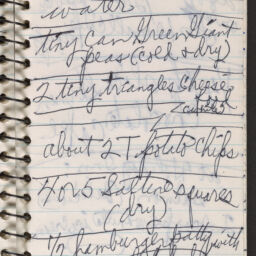 water
tiny can Green Giant
peas (cold & dry)
2 tiny triangles cheese
about 2 T potato chips
4 or 5 Saltine squares
(dry)
1/2 hamburger patty with